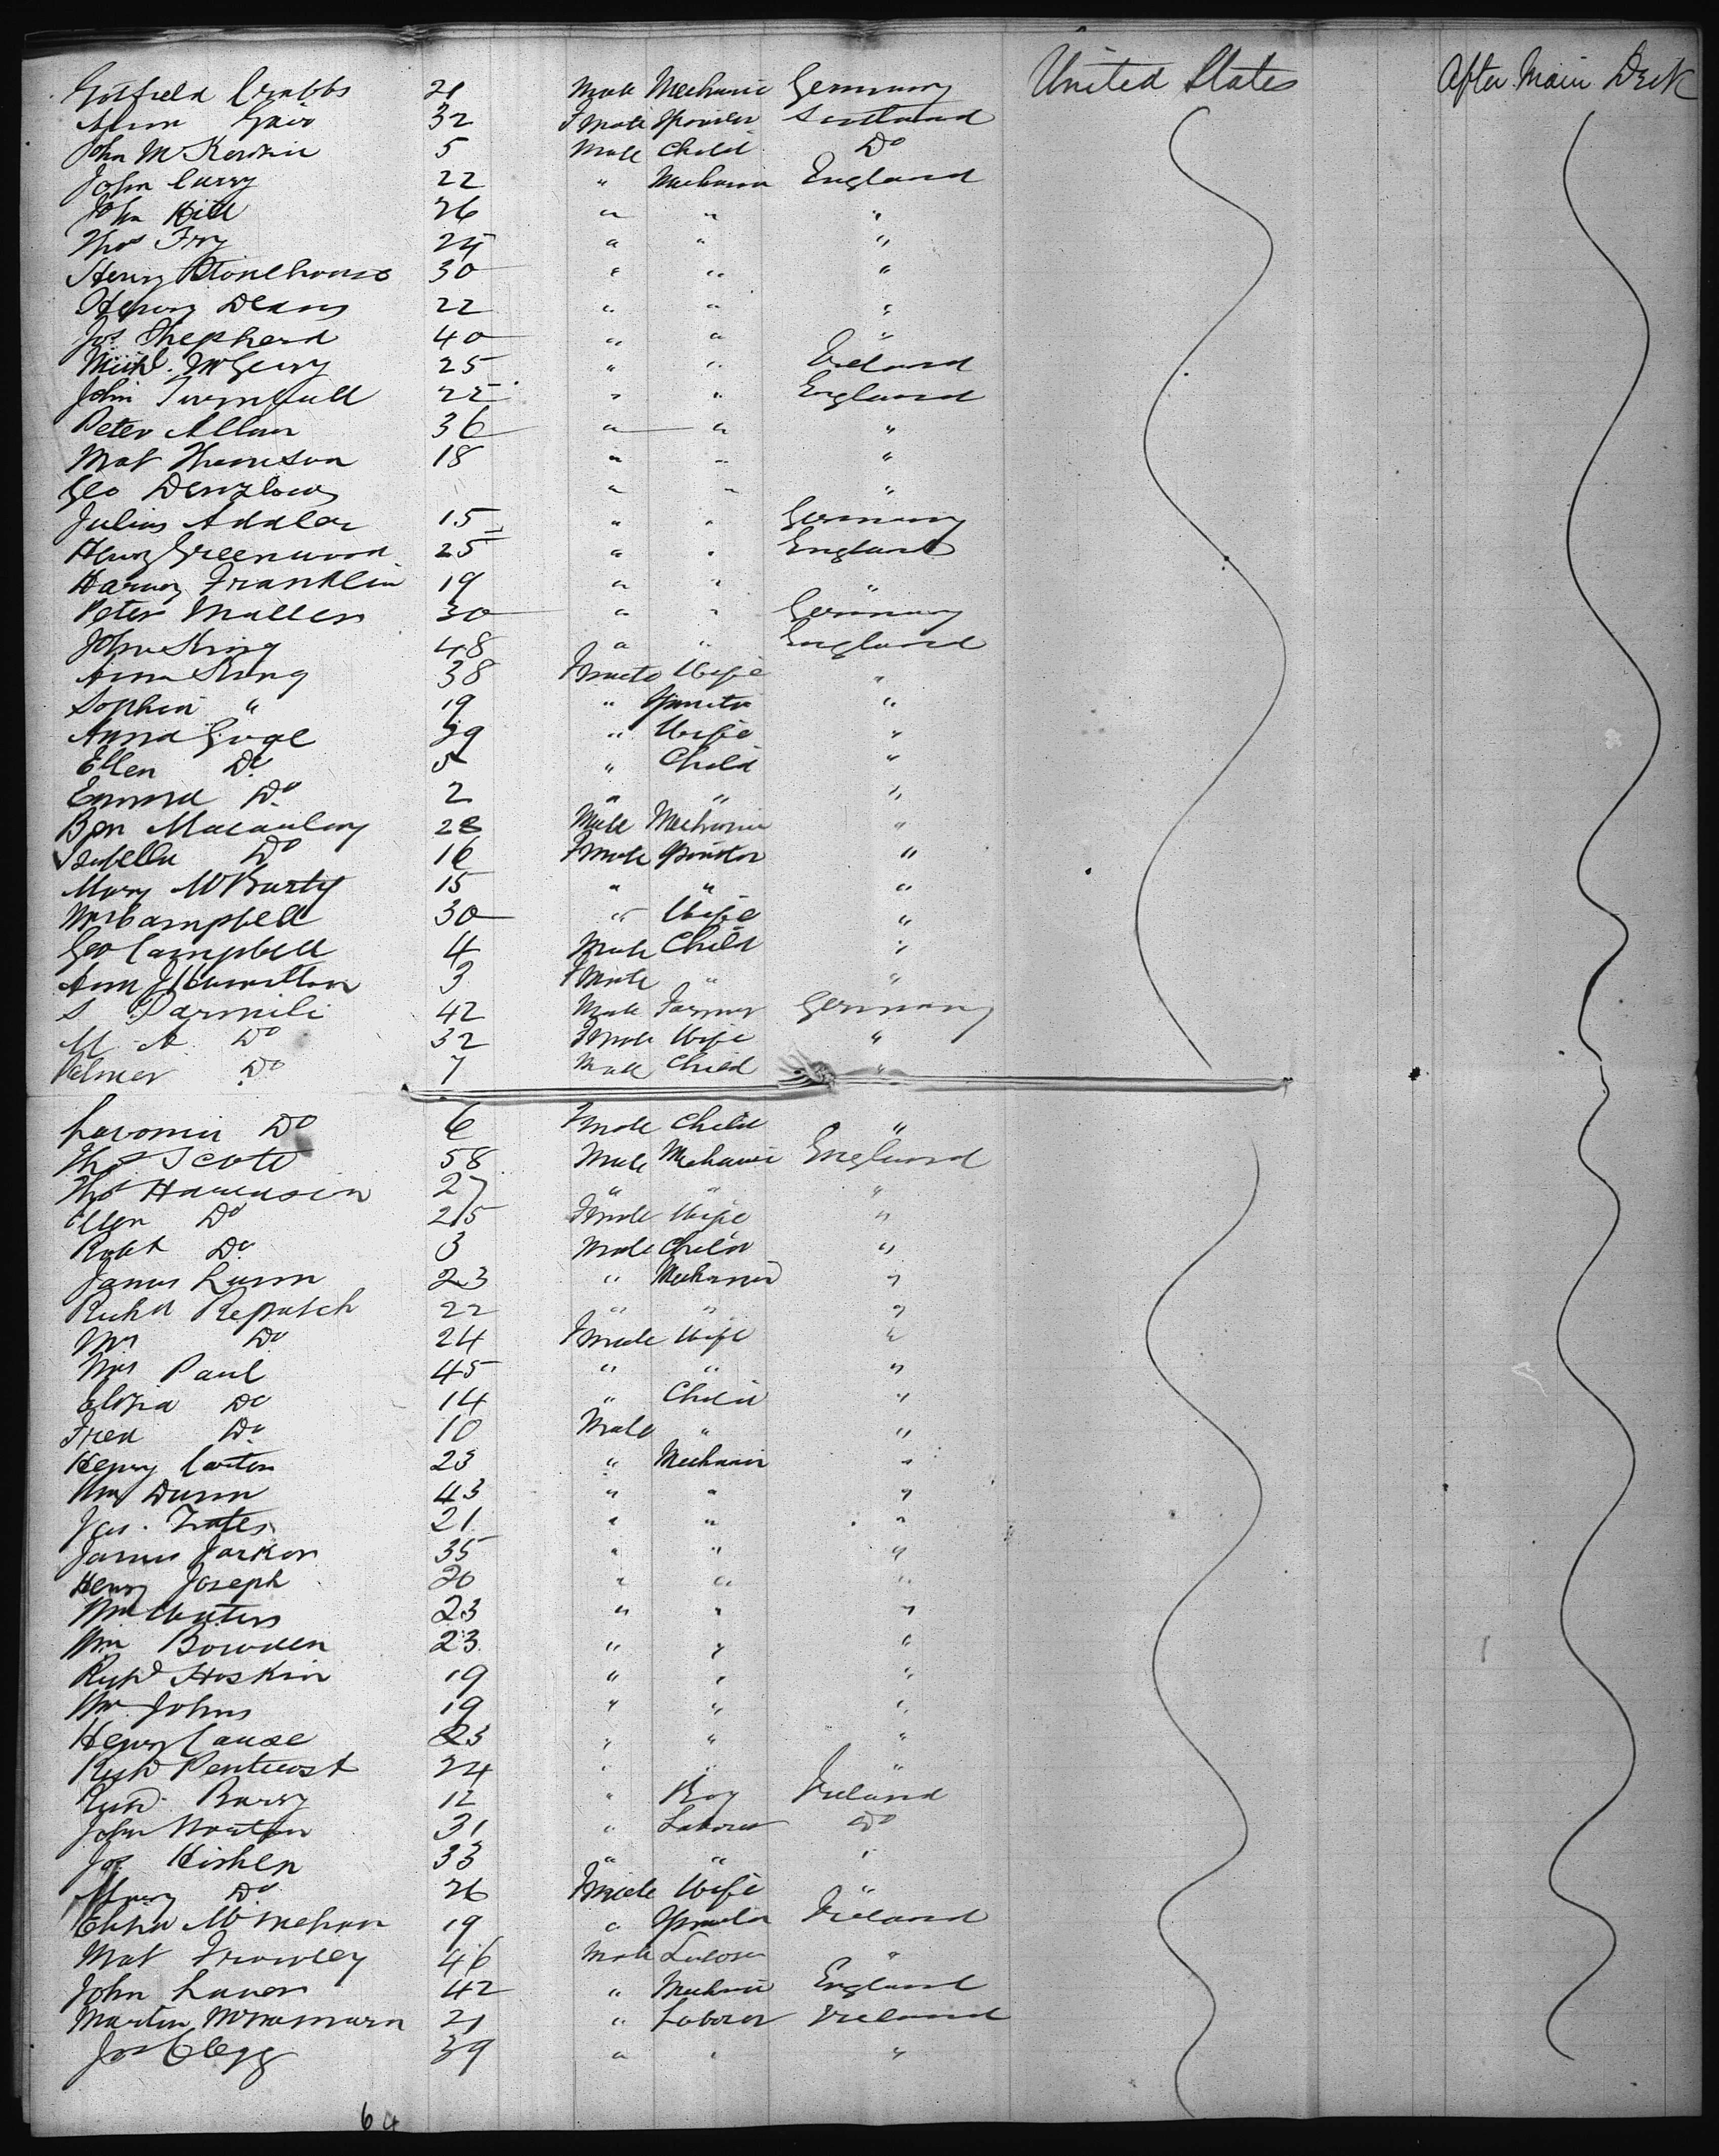 Gotfield Crabbs 21 Male Mechanic Germany United States After Main Deck
Ann Gair 32 Fmale Spinster Scotland
John McKerwin 5 Male Child Do
John Curry 22 " Mechanic England
John Hill 26 " " "
Thos Fry 24 " " "
Henry Stonehouse 30 " " "
Henry Deans 22 " " "
Jos Shepherd 40 " " "
Michl. McGeary 25 " " Ireland
John Turnbull 22 " " England
Peter Allan 36 " " "
Mat Thomson 18 " " "
Geo Denzlow " " "
Julius Addler 15 " " Germany
Henry Greenwood 25 " " England
Harvey Franklin 19 " " "
Peter Mullen 30 " " Germany
John King 48 " " England
Ann King 38 Fmale Wife "
Sophia " 19 " Spinster "
Anna Goge 39 " Wife "
Ellen Do 5 " Child "
Emma Do 2 " " "
Ben Macauley 28 Male Mechanic "
Isabella Do 16 Fmale Spinster "
Mary McBurty 15 " " "
Mrs Campbell 30 " Wife "
Geo Campbell 4 Male Child "
Ann J Hamilton 3 Fmale " "
S Parmili 42 Male Farmer Germany
M A Do 32 Fmale Wife "
Pelmer Do 7 Male Child "
Lavonia Do 6 Fmale Child "
Thos Scott 58 Male Mechanic England
Thos 27 " " "
Ellen Do 25 Fmale Wife "
Robt Do 3 Male Child "
James Lunn 23 " Mechanic "
Richd Reputsch 22 " " "
Mrs Do 24 Fmale Wife "
Mrs Paul 45 " " "
Eliza Do 14 " Child "
Fred Do 10 Male " "
Henry Carter 23 " Mechanic "
Wm Dunn 43 " " "
Jas. Yates 21 " " "
James Parker 35 " " "
Henry Joseph 20 " " "
Wm Waters 23 " " "
Wm Bowden 23 " " "
Richd Hoskin 19 " " "
Wm Johns 19 " " "
Henry Cause 23 " " "
Richd Pentecost 24 " " "
Richd Barry 12 " Boy Ireland
John Norton 31 " Laborer Do
Jos Kishen 33 " " "
Mary Do 26 Fmale Wife "
Eliza McMehan 19 " Spinster Ireland
Mat Frawley 46 Male Laborer "
John Laven 42 " Mechanic England
Martin McNamara 21 " Laborer Ireland
Jos Clegg 39 " " "
64